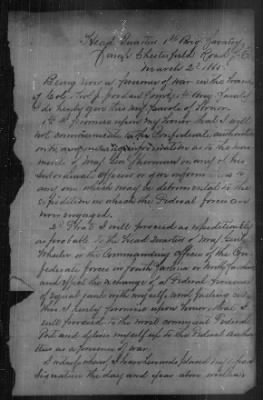 Head Quarters 1st Brig Cavalry,
Camp Chesterfield Road, S.C.
March 2d 1865.
Being now a prisoner of war in the hands
of Col. Thos J. Jordan Comd'g 1st Brig Cavalry
I do hereby give this my Parole of Honor.
1st I Promise upon my honor that I will
not communicate to the Confederate authorities
or to any information as to the
ment of Maj Gen Sherman or any of his
Subordinate officers or give information to
any one which may be detrimental to the
expedition in which the Federal forces are
now engaged.
2d That I will proceed as expeditiously
as possible to the Head Quarters of Maj Genl
Wheeler or the Commanding officer of the Con-
federate forces in South Carolina or North Carolina
and effect the exchange of a Federal Prisoner
of equal rank with myself, and failing in
this I hereby promise upon honor, that I
will proceed to the most convenient Federal
Post and deliver myself up to the Federal Author-
ities as a prisoner of war.
I have hereunto placed my
Signature the day and year above written